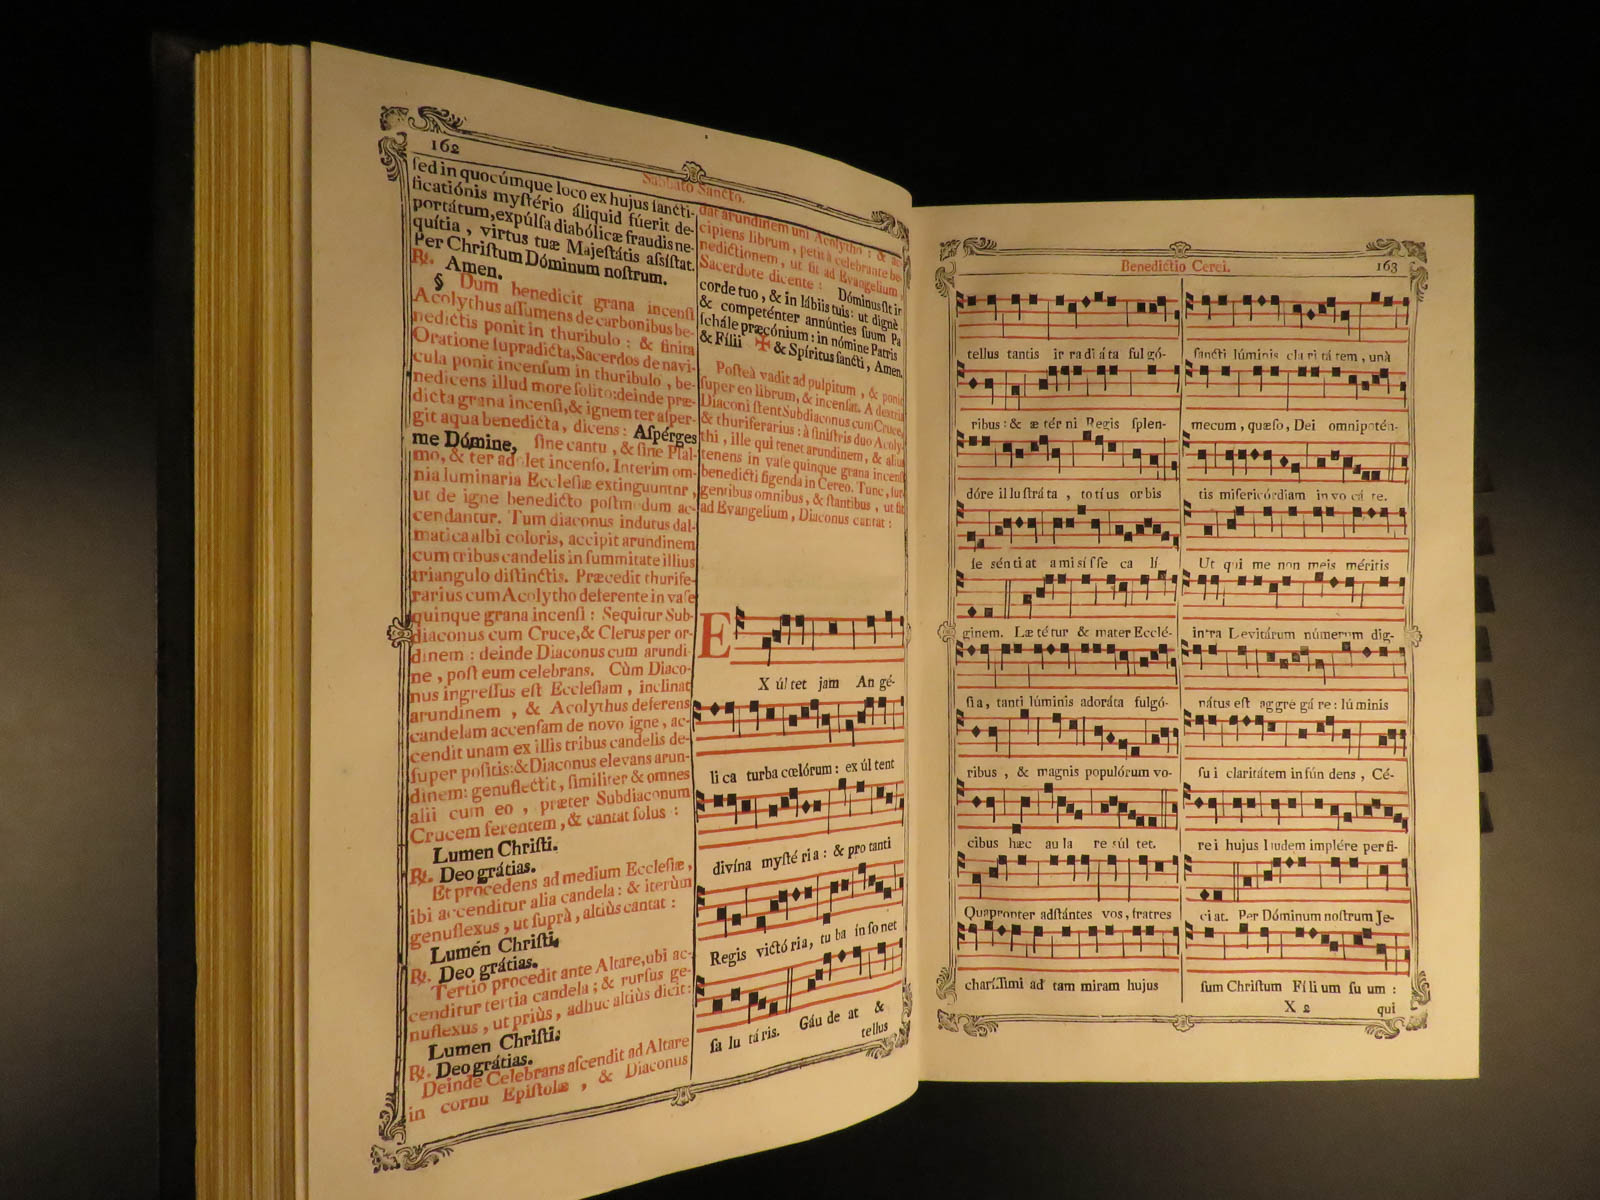 162
Sabbato Sancto.
sed in quocúmque loco ex hujus sancti-
ficatiónis mystério áliquid fúerit de-
portátum, expúlsa diabólicæ fraudis ne-
quítia, virtus tuæ Majestátis assístat.
Per Christum Dóminum nostrum.
℟. Amen.
§ Dum benedicit grana incensi
Acolythus assumens de carbonibus be-
nedictis ponit in thuribulo: & finita
Oratione supradicta, Sacerdos de navi-
cula ponit incensum in thuribulo, be-
nedicens illud more solito: deinde præ-
dicta grana incensi, & ignem ter asper-
git aqua benedicta, dicens: Aspérges
me Dómine, sine cantu, & sine Psal-
mo, & ter adolet incenso. Interim om-
nia luminaria Ecclesiæ extinguuntur,
ut de igne benedicto postmodum ac-
cendantur. Tum diaconus indutus dal-
matica albi coloris, accipit arundinem
cum tribus candelis in summitate illius
triangulo distinctis. Præcedit thurife-
rarius cum Acolytho deferente in vase
quinque grana incensi: Sequitur Sub-
diaconus cum Cruce, & Clerus per or-
dinem: deinde Diaconus cum arundi-
ne, post eum celebrans. Cùm Diaco-
nus ingressus est Ecclesiam, inclinat
arundinem, & Acolythus deferens
candelam accensam de novo igne, ac-
cendit unam ex illis tribus candelis de-
super positis: & Diaconus elevans arun-
dinem: genuflectit, similiter & omnes
alii cum eo, præter Subdiaconum
Crucem ferentem, & cantat solus:
Lumen Christi.
℟. Deo grátias.
Et procedens ad medium Ecclesiæ,
ibi accenditur alia candela: & iterùm
genuflexus, ut suprà, altiùs cantat:
Lumén Christi.
℟. Deo grátias.
Tertio procedit ante Altare, ubi ac-
cenditur tertia candela; & rursus ge-
nuflexus, ut priùs, adhuc altiùs dicit:
Lumen Christi.
℟. Deo grátias.
Deinde Celebrans ascendit ad Altare
in cornu Epistolæ, & Diaconus
dat arundinem uni Acolytho: & ac-
cipiens librum, petit à celebrante be-
nedictionem, ut fit ad Evangelium,
Sacerdote dicente: Dóminus sit in
corde tuo, & in lábiis tuis: ut dignè,
& competénter annúnties suum Pa
schále præcónium: in nómine Patris
& Fílii ✠ & Spíritus sancti, Amen.
Posteà vadit ad pulpitum, & ponit
super eo librum, & incensat. A dextris
Diaconi stent Subdiaconus cum Cruce,
& thuriferarius: à sinistris duo Acoly-
thi, ille qui tenet arundinem, & alius
tenens in vase quinque grana incensi
benedicti figenda in Cereo. Tunc, sur-
gentibus omnibus, & stantibus, ut fit
ad Evangelium, Diaconus cantat:
E
X úl tet jam An gé-
li ca turba cœlórum: ex úl tent
divína mysté ria: & pro tanti
Regis victó ria, tu ba in so net
sa lu tá ris. Gáu de at &
tellus
Benedictio Cerei.
163
tellus tantis ir ra di á ta ful gó-
ribus: & æ tér ni Regis splen-
dóre il lu strá ta, to tí us or bis
se sén ti at a mi sí sse ca lí
ginem. Læ té tur & mater Ecclé-
si a, tanti lúminis adoráta fulgó-
ribus, & magnis populórum vo-
cibus hæc au la re súl tet.
Quapropter adstántes vos, fratres
charíssimi ad tam miram hujus
sancti lúminis cla ri tá tem, unà
mecum, quæso, Dei omnipotén-
tis misericórdiam in vo cá te.
Ut qui me non meis méritis
intra Levitárum númerum dig-
nátus est ag gre gá re: lú minis
su i claritátem in fún dens, Cé-
re i hujus laudem implére per fi-
ci at. Per Dóminum nostrum Je-
sum Christum Fí li um su um:
X 2
qui